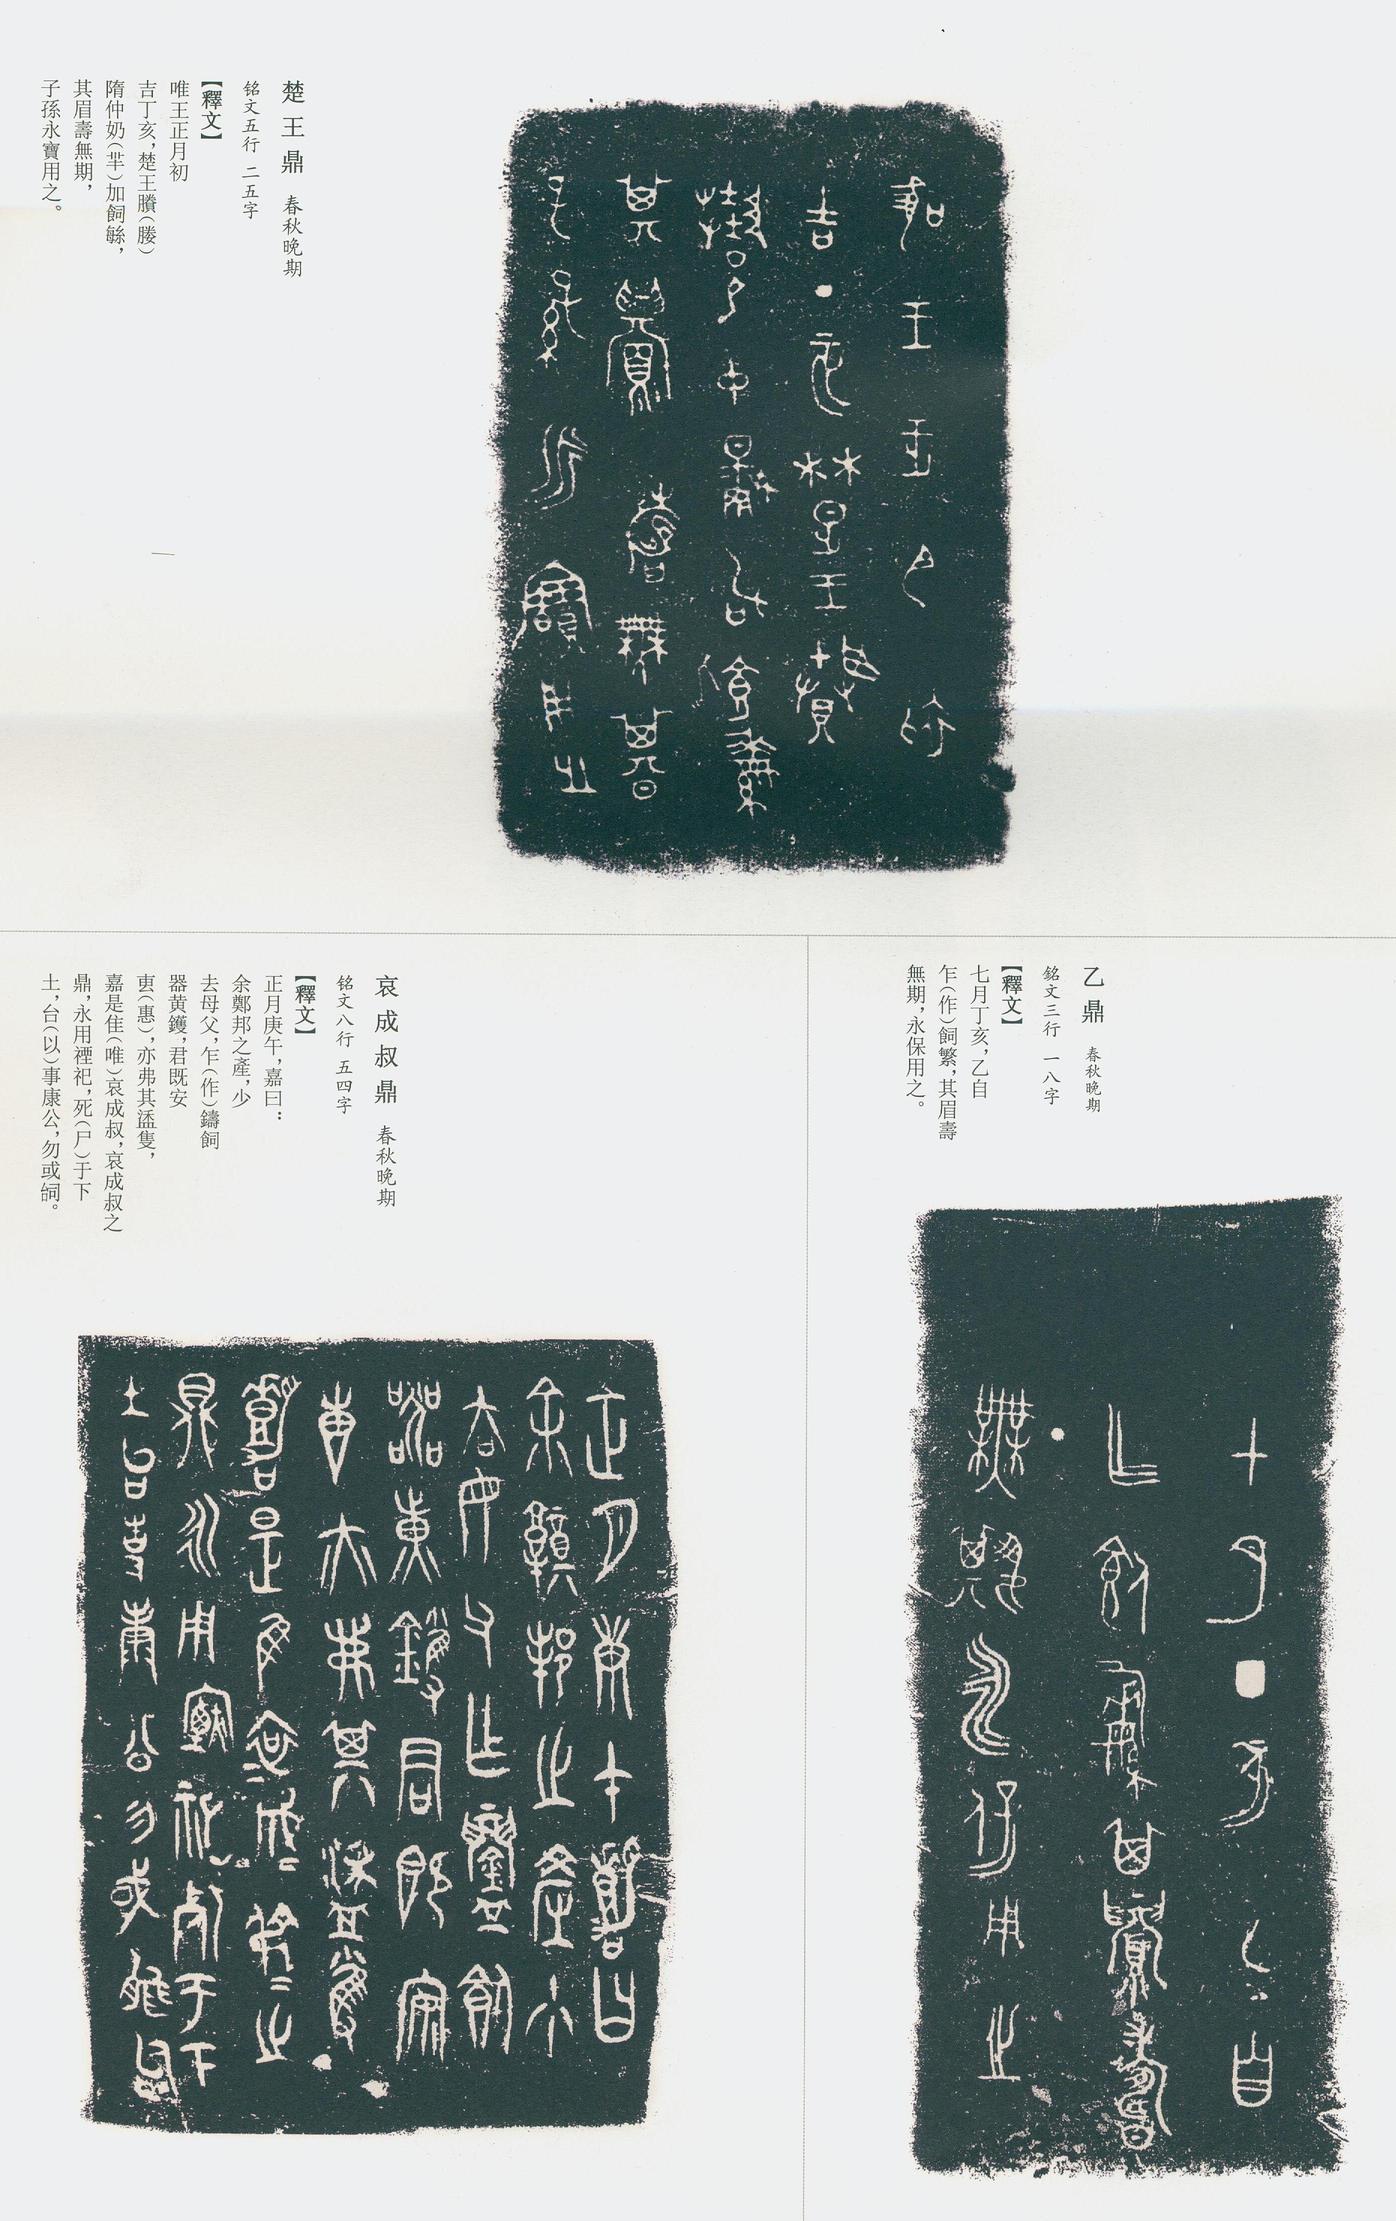 楚王鼎 春秋晚期
铭文五行 二五字
【釋文】
唯王正月初
吉丁亥，楚王賸（媵）
隋仲奶（芈）加飼緐，
其眉壽無期，
子孫永寶用之。
乙鼎 春秋晚期
銘文三行 一八字
【釋文】
七月丁亥，乙自
乍（作）飼繁，其眉壽
無期，永保用之。
哀成叔鼎 春秋晚期
铭文八行 五四字
【釋文】
正月庚午，嘉曰：
余鄭邦之產，少
去母父，乍（作）鑄飼
器黄鑊，君既安
叀（惠），亦弗其盝隻，
嘉是隹（唯）哀成叔，哀成叔之
鼎，永用禋祀，死（尸）于下
土，台（以）事康公，勿或